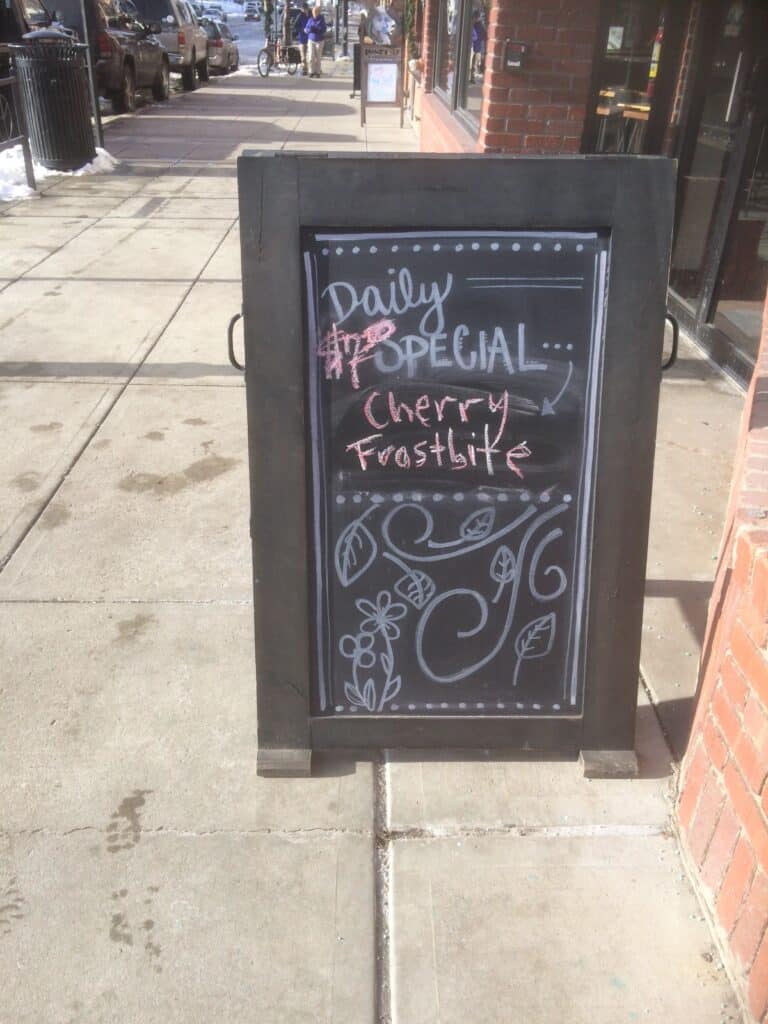 Daily
$7⁰⁰ SPECIAL...
Cherry
Frostbite